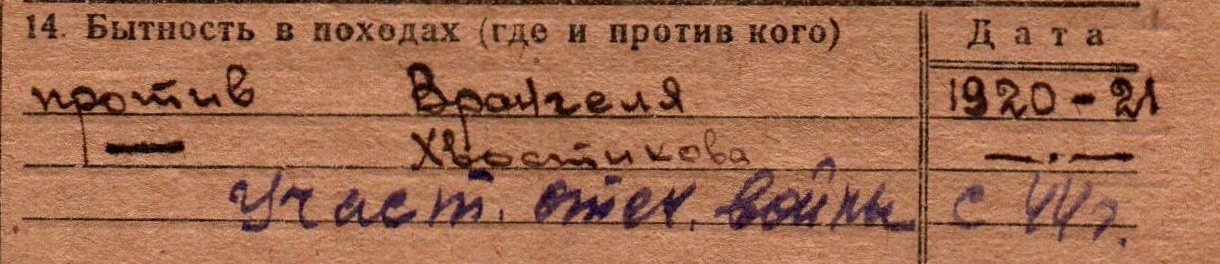 14. Бытность в походах (где и против кого) Дата
против Врангеля 1920-21
— Хвостикова —.—
Участ. отеч. войны с 44г.